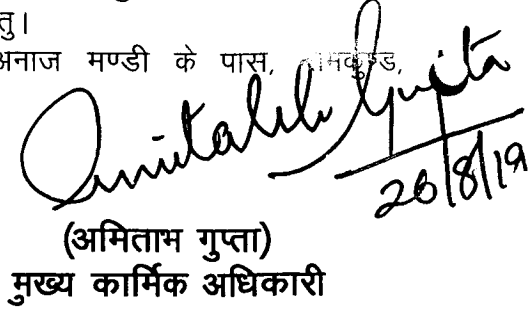 तु।
अनाज मण्डी के पास,
Amitabh Gupta
26/8/19
(अमिताभ गुप्ता)
मुख्य कार्मिक अधिकारी